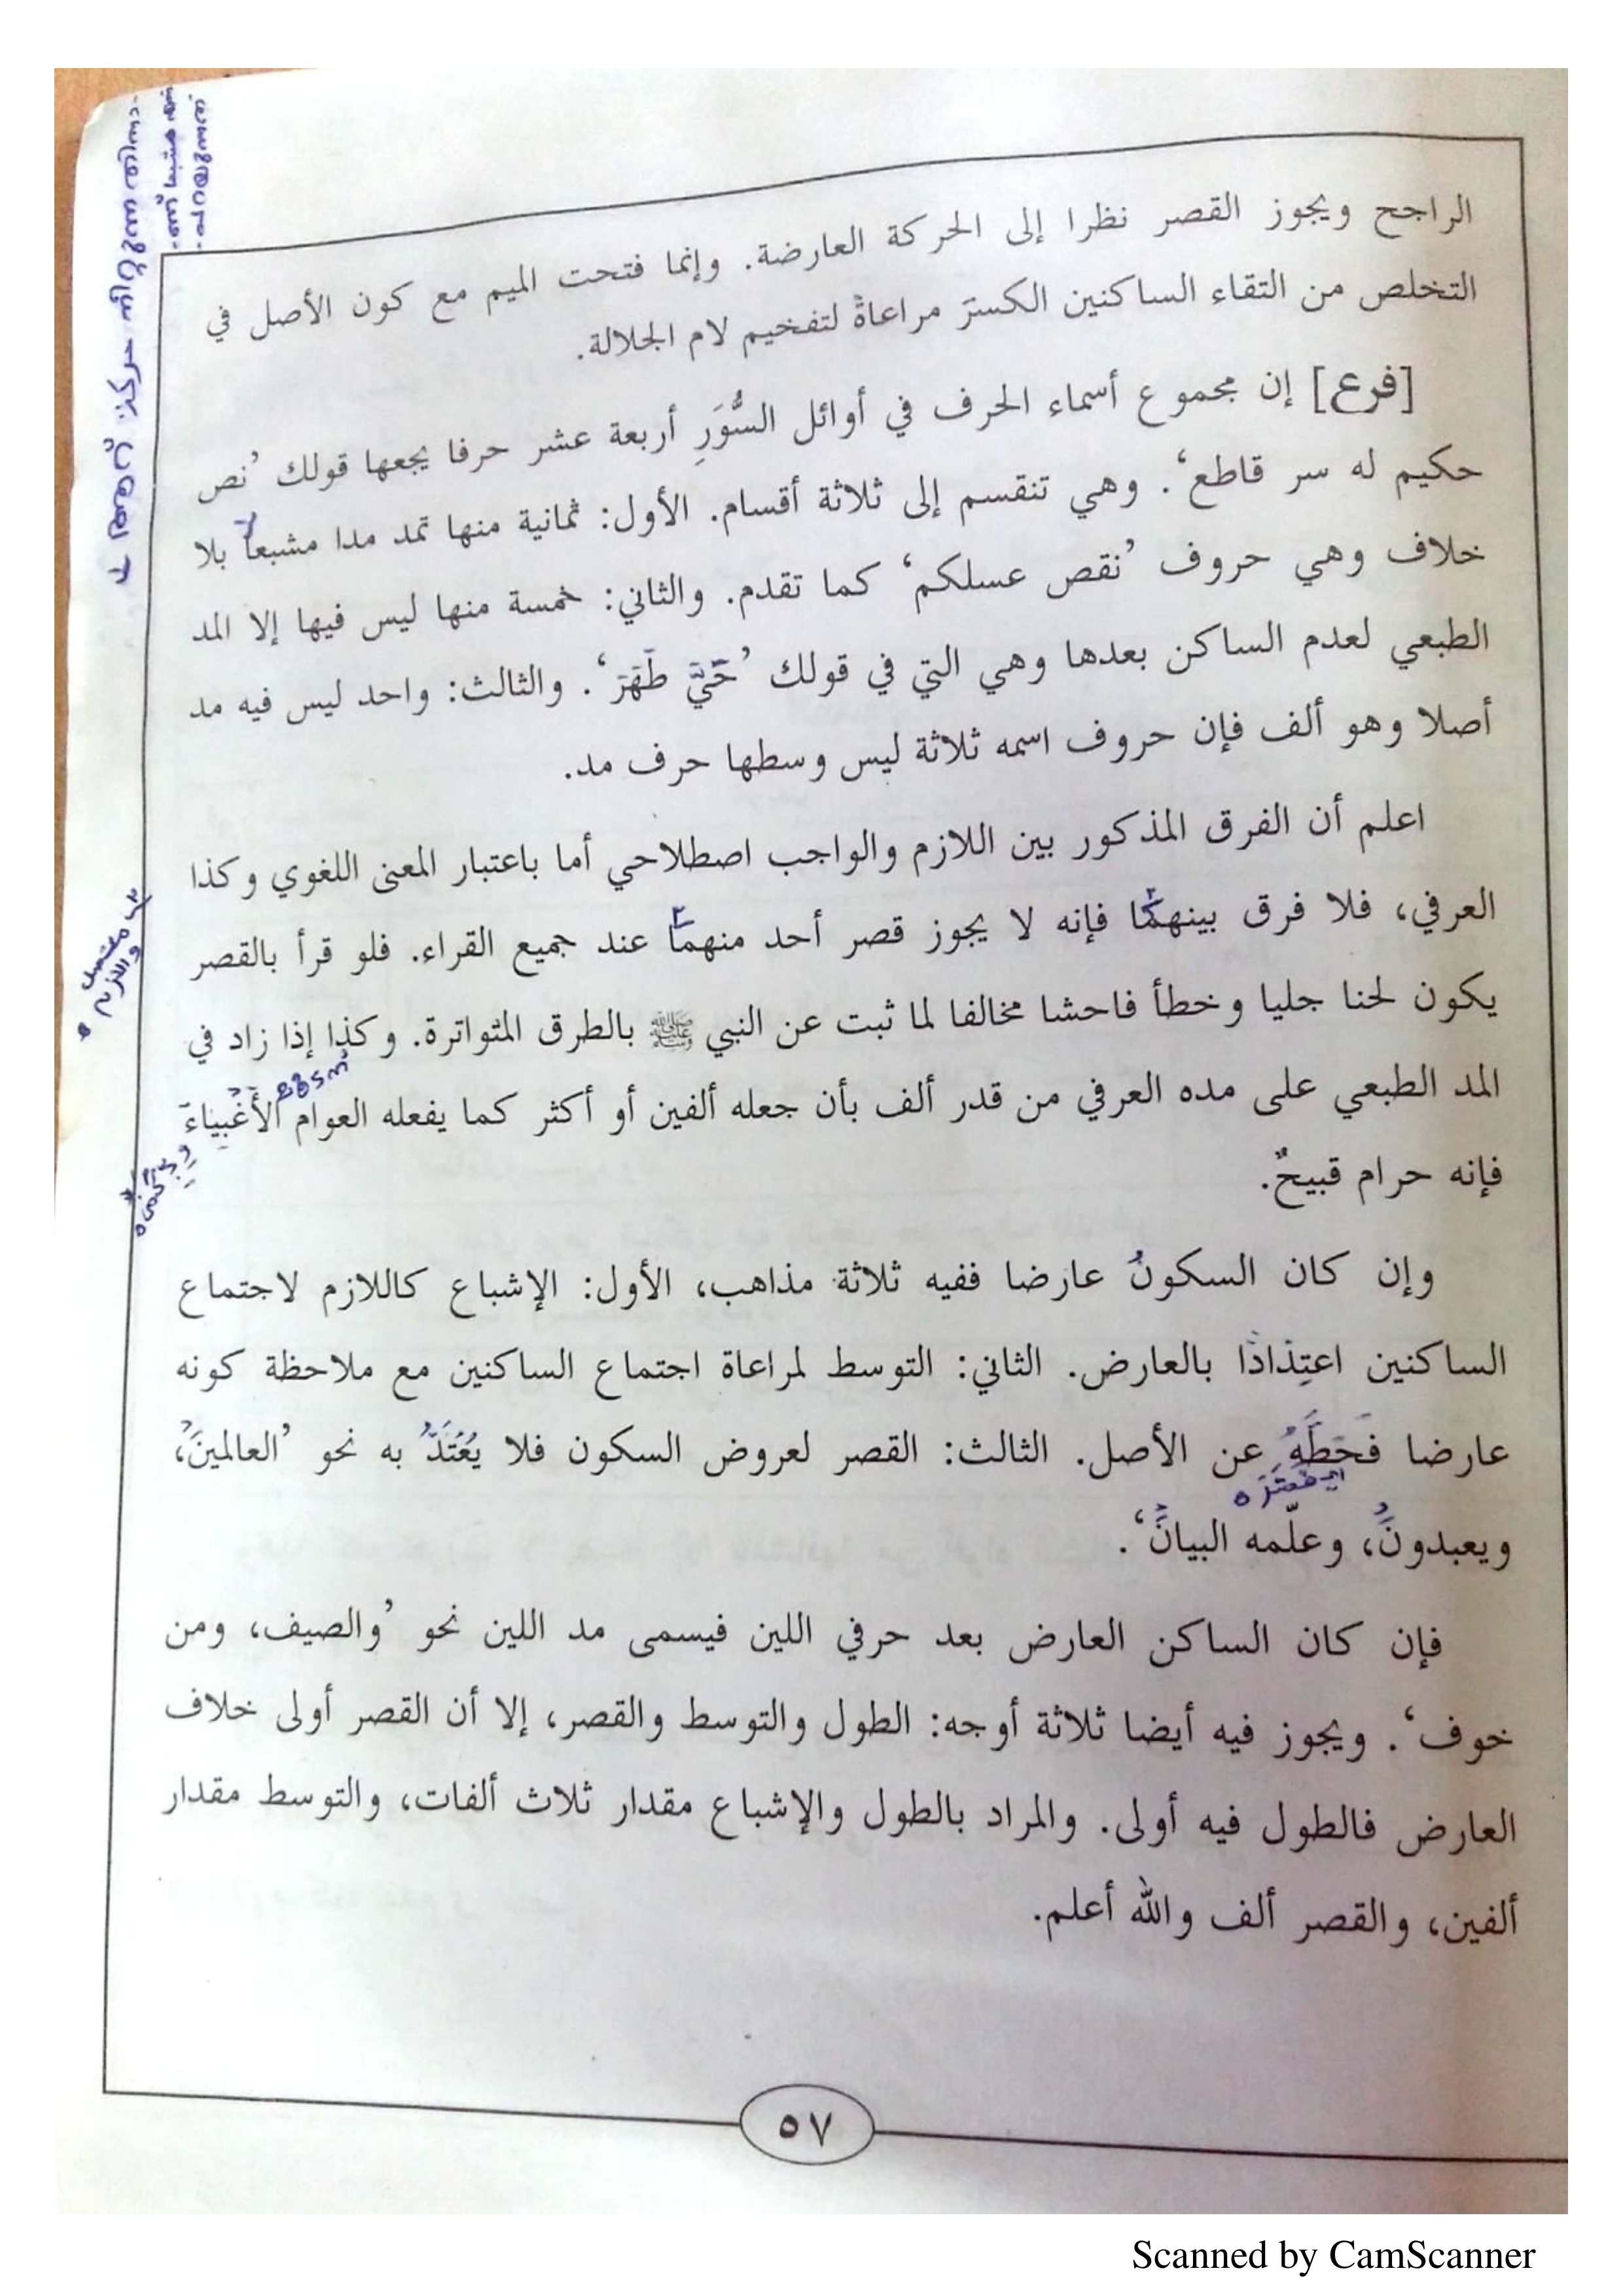 الراجح ويجوز القصر نظرا إلى الحركة العارضة. وإنما فتحت الميم مع كون الأصل في
التخلص من التقاء الساكنين الكسرَ مراعاةً لتفخيم لام الجلالة.
[فرع] إن مجموع أسماء الحرف في أوائل السُّوَرِ أربعة عشر حرفا يجعها قولك ’نص
حكيم له سر قاطع‘. وهي تنقسم إلى ثلاثة أقسام. الأول: ثمانية منها تمد مدا مشبعا بلا
خلاف وهي حروف ’نقص عسلكم‘ كما تقدم. والثاني: خمسة منها ليس فيها إلا المد
الطبعي لعدم الساكن بعدها وهي التي في قولك ’حَيٌّ طَهَرَ‘. والثالث: واحد ليس فيه مد
أصلا وهو ألف فإن حروف اسمه ثلاثة ليس وسطها حرف مد.
اعلم أن الفرق المذكور بين اللازم والواجب اصطلاحي أما باعتبار المعنى اللغوي وكذا
العرفي، فلا فرق بينهما فإنه لا يجوز قصر أحد منهما عند جميع القراء. فلو قرأ بالقصر
يكون لحنا جليا وخطأ فاحشا مخالفا لما ثبت عن النبي ﷺ بالطرق المتواترة. وكذا إذا زاد في
المد الطبعي على مده العرفي من قدر ألف بأن جعله ألفين أو أكثر كما يفعله العوام الأَغْبِيَاءَ
فإنه حرام قبيحٌ.
وإن كان السكونُ عارضا ففيه ثلاثة مذاهب، الأول: الإشباع كاللازم لاجتماع
الساكنين اعتِدَادًا بالعارض. الثاني: التوسط لمراعاة اجتماع الساكنين مع ملاحظة كونه
عارضا فَحَطَّهُ عن الأصل. الثالث: القصر لعروض السكون فلا يُعْتَدُّ به نحو ’العالمينَْ،
ويعبدونَْ، وعلّمه البيانَْ‘.
فإن كان الساكن العارض بعد حرفي اللين فيسمى مد اللين نحو ’والصيف، ومن
خوف‘. ويجوز فيه أيضا ثلاثة أوجه: الطول والتوسط والقصر، إلا أن القصر أولى خلاف
العارض فالطول فيه أولى. والمراد بالطول والإشباع مقدار ثلاث ألفات، والتوسط مقدار
ألفين، والقصر ألف والله أعلم.
٥٧
Scanned by CamScanner